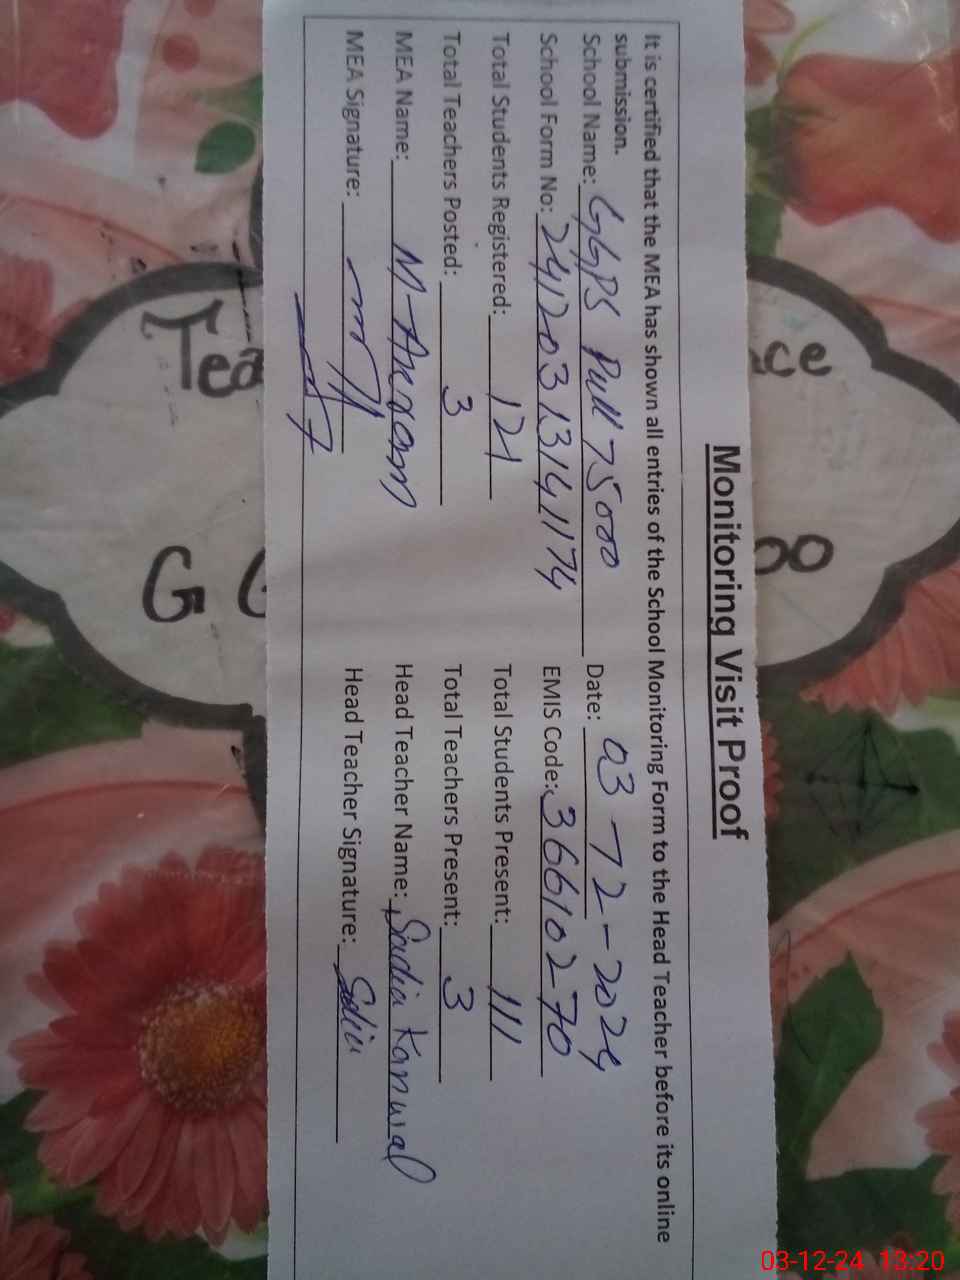 Monitoring Visit Proof
It is certified that the MEA has shown all entries of the School Monitoring Form to the Head Teacher before its online
submission.
School Name: GGPS Pull 75000 Date: 03-12-2024
School Form No: 241203131411174 EMIS Code: 36610270
Total Students Registered: 121 Total Students Present: 111
Total Teachers Posted: 3 Total Teachers Present: 3
MEA Name: M-Akram Head Teacher Name: Sadia Kanwal
MEA Signature: Head Teacher Signature: Sadia
Tea
ce
G
8
03-12-24 13:20